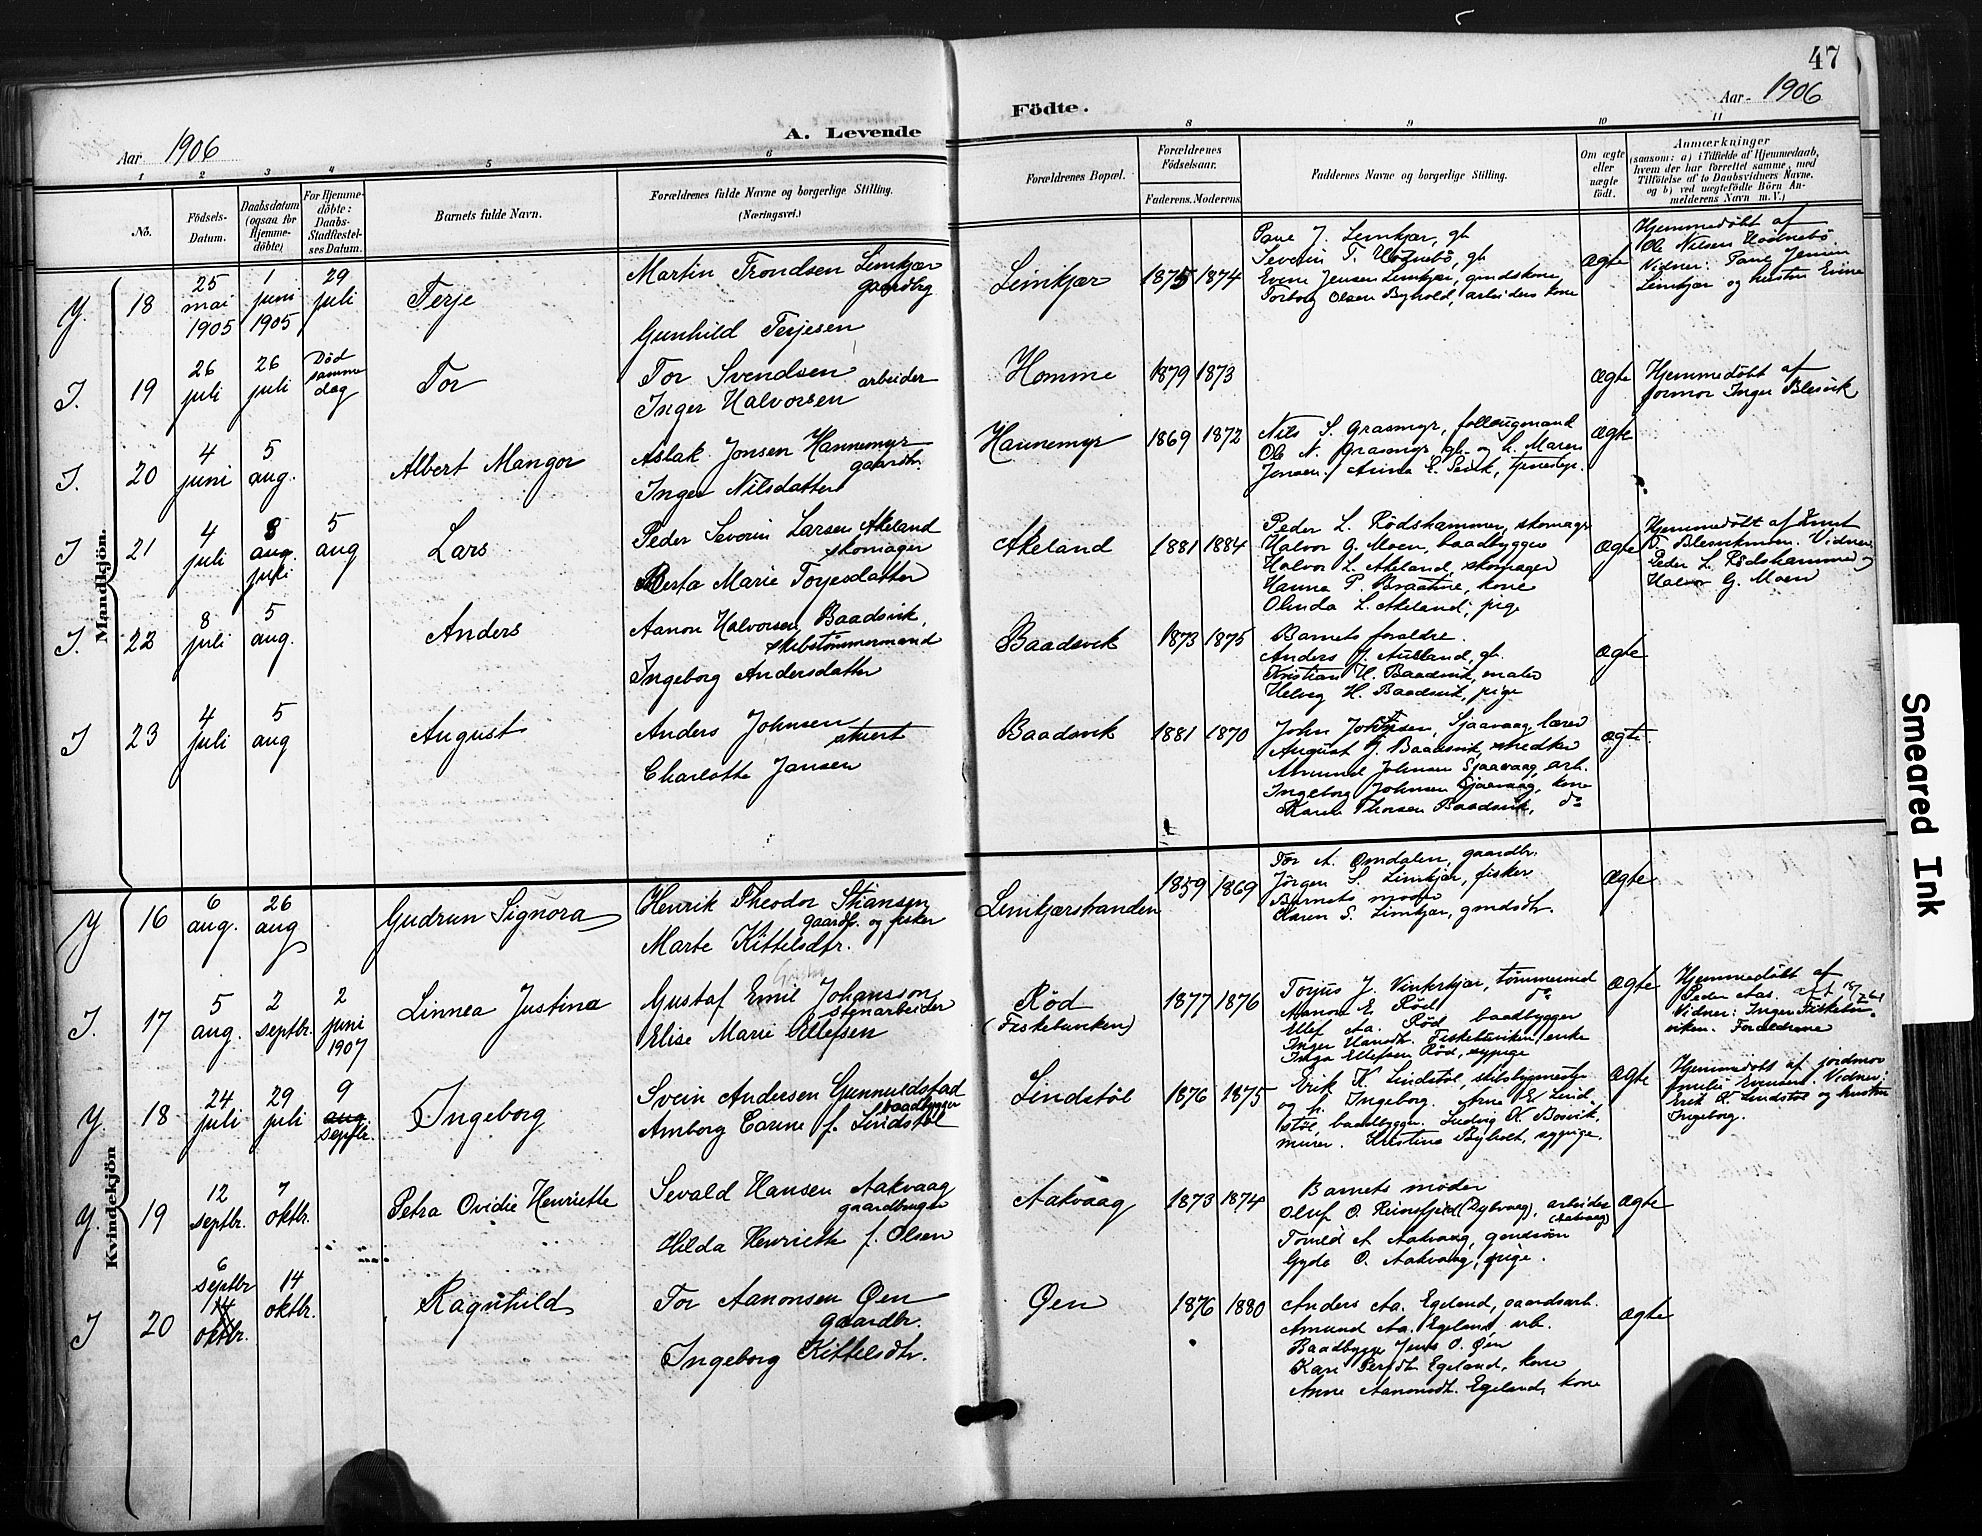 47
Aar 1906
A. Levende
Födte.
Aar 1906
1 2 3 4 5 6 8 9 10 11
No.
Födsels-Datum.
Daabsdatum (ogsaa for Hjemme-döbte)
For Hjemme-döbte: Daabs-Stadfæstel-ses Datum.
Barnets fulde Navn.
Forældrenes fulde Navne og borgerlige Stilling. (Næringsvei.)
Forældrenes Bopæl.
Forældrenes Födselsaar.
Faderens. Moderens.
Faddernes Navne og borgerlige Stilling.
Om ægte eller uægte födt.
Anmærkninger
(saasom: a) i Tilfælde af Hjemmedaab, hvem der har forrettet samme, med Tilföielse af to Daabsvidners Navne, og b) ved uegtefödte Börn An-melderens Navn m. V.)
Mandkjön.
Y. 18
25 mai 1905
1 juni 1905
29 juli
Terje
Martin Trondsen Limkjær
gaardbg
Gunhild Terjesen
Limkjær
1875 1874
Severin T. Hødnebø, gb.
Evene Jensen Limkjær, gmdskone
Torborg Olsen Byhold, arbeiders kone
ægte
Hjemmedøbt af
Ole Nilsen Hødnebø
Vidner: Paul Jensen
Limkjær og hustru Evine
I. 19
26 juli
26 juli
Død samme dag
Tor
Tor Svendsen
arbeider
Inger Halvorsen
Homme
1879 1873
ægte
Hjemmedøbt af
formor Inger Blesvik
I. 20
4 juni
5 aug.
Albert Mangor
Aslak Jonsen Hannemyr
gaardbr.
Inger Nilsdatter
Hannemyr
1869 1872
Nils S. Grasmyr,
Ole N. Grasmyr, gb. og h. Maren
Jensen / Anina E. tjenestpr.
ægte
I 21
4 juli
5 aug. juli
5 aug
Lars
Peder Severin Larsen Akeland
skomager
Berta Marie Torjesdatter
Akeland
1881 1884
Peder L. Rødshammer, skomagr
Halvor G. Moen, baadbygger
Halvor L. Akeland, skomager
Hanna P. Braatne, kone
Olinda L. Akeland, pige
ægte
Hjemmedøbt af Knut
T. Blesvikmoen. Vidner
Peder L. Rødshammer og
Halvor G. Moen
I. 22
8 juli
5 aug.
Anders
Aanon Halvorsen Baadsvik,
skibstømmermand
Ingeborg Andersdatter
Baadsvik
1873 1875
Barnets foræld​re.
Anders J. gb.
Kristian H. Baadsvik, maler
Helveg H. Baadsvik, pige
ægte
I 23
4 juli
5 aug
August
Anders Johnsen
stuert
Charlotte Jansen
Baadsvik
1881 1870
John Sjaavaag,
August J. Baadsvik, snedker
Amund Johnsen Sjaavaag, arb.
Ingeborg Johnsen Sjaavaag, kone
Karen Thorsen Baadsvik, do
ægte
Kvindekjön
Y 16
6 aug.
26 aug
Gudrun Signora
Henrik Theodor Stiansen
gaardb. og fisker
Marte Kittelsdtr.
Limkjærstranden
1859 1869
Tor A. Omdalen, gaardbr.
Jørgen S. Limkjær, fisker
Barnets moder
Karen S. Limkjær, gmdsdtr.
ægte
I. 17
5 aug.
2 septbr.
2 juni 1907
Linnea Justina
Gustaf Emil Johansson
stenarbeider
Elise Marie Ellefsen
Rød
(Fiskebunken)
1877 1876
Torjus J. Vinterkjær, tømmermd
Aanon E. Rød do
Ellef Aa. Rød baadbygger
Inger Hansdtr. Fiskebuviken, enke
Inga Ellefsen Rød, sypige
ægte
Hjemmedøbt af
Peder Aas.
Vidner: Inger Fiskebu-
viken. Forældrene
Y 18
24 juli
29 juli
9 aug septbr.
Ingeborg
Svein Andersen Gunnuldstad
baadbygger
Amborg Earine f. Lindstøl
Lindstøl
1876 1875
Erik K. Lindstøl, skibsbygmester
og h. Ingeborg. Arne E. Lind-
støl, baadbygger. Ludvig K. Bosvik,
murer. Kristine Byholt, sypige.
ægte
Hjemmedøbt af jordmor
Emilie Evensen. Vidner:
Erik K. Lindstøl og hustru
Ingeborg.
Y. 19
12 septbr.
7 oktbr.
Petra Ovidie Henriette
Sevald Hansen Aakvaag
gaardbruger
Hilda Henriette f. Olsen
Aakvaag
1873 1874
Barnets moder
Oluf O. Reinsfjeld (Dybvaag), arbeider
(Aakvaag)
A. Aakvaag, gmdssøn
Gyda O. Aakvaag, pige.
ægte
I 20
6 septbr
14 oktbr.
14 oktbr.
Ragnhild
Tor Aanonsen Øen
gaardbr.
Ingeborg Kittelsdtr.
Øen
1876 1880
Anders Aa. Egeland, gaardsarb.
Amund Aa. Egeland arb.
Baadbygge Jens O. Øen
Kari Persdtr Egeland, kone
Anne Aanonsdtr. Egeland, kone
ægte
Smeared Ink